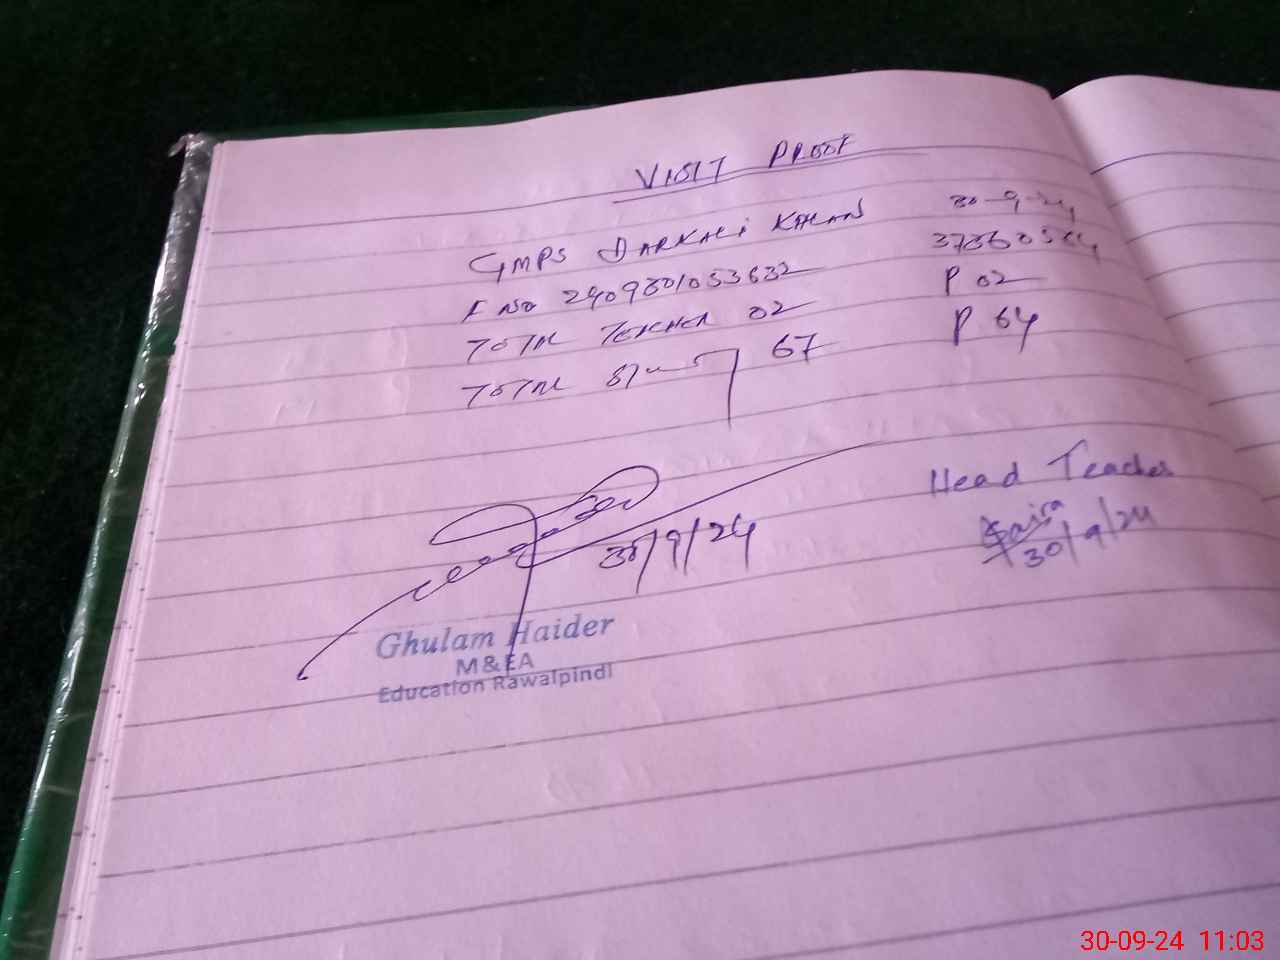 VISIT PROOF
GMPS DARKALI KALAN 30-9-24
F NO 2409301053632 37360564
TOTAL TEACHER 02 P 02
TOTAL 67 P 64
Head Teacher
30/9/24
30/9/24
Ghulam Haider
M&EA
Education Rawalpindi
30-09-24 11:03